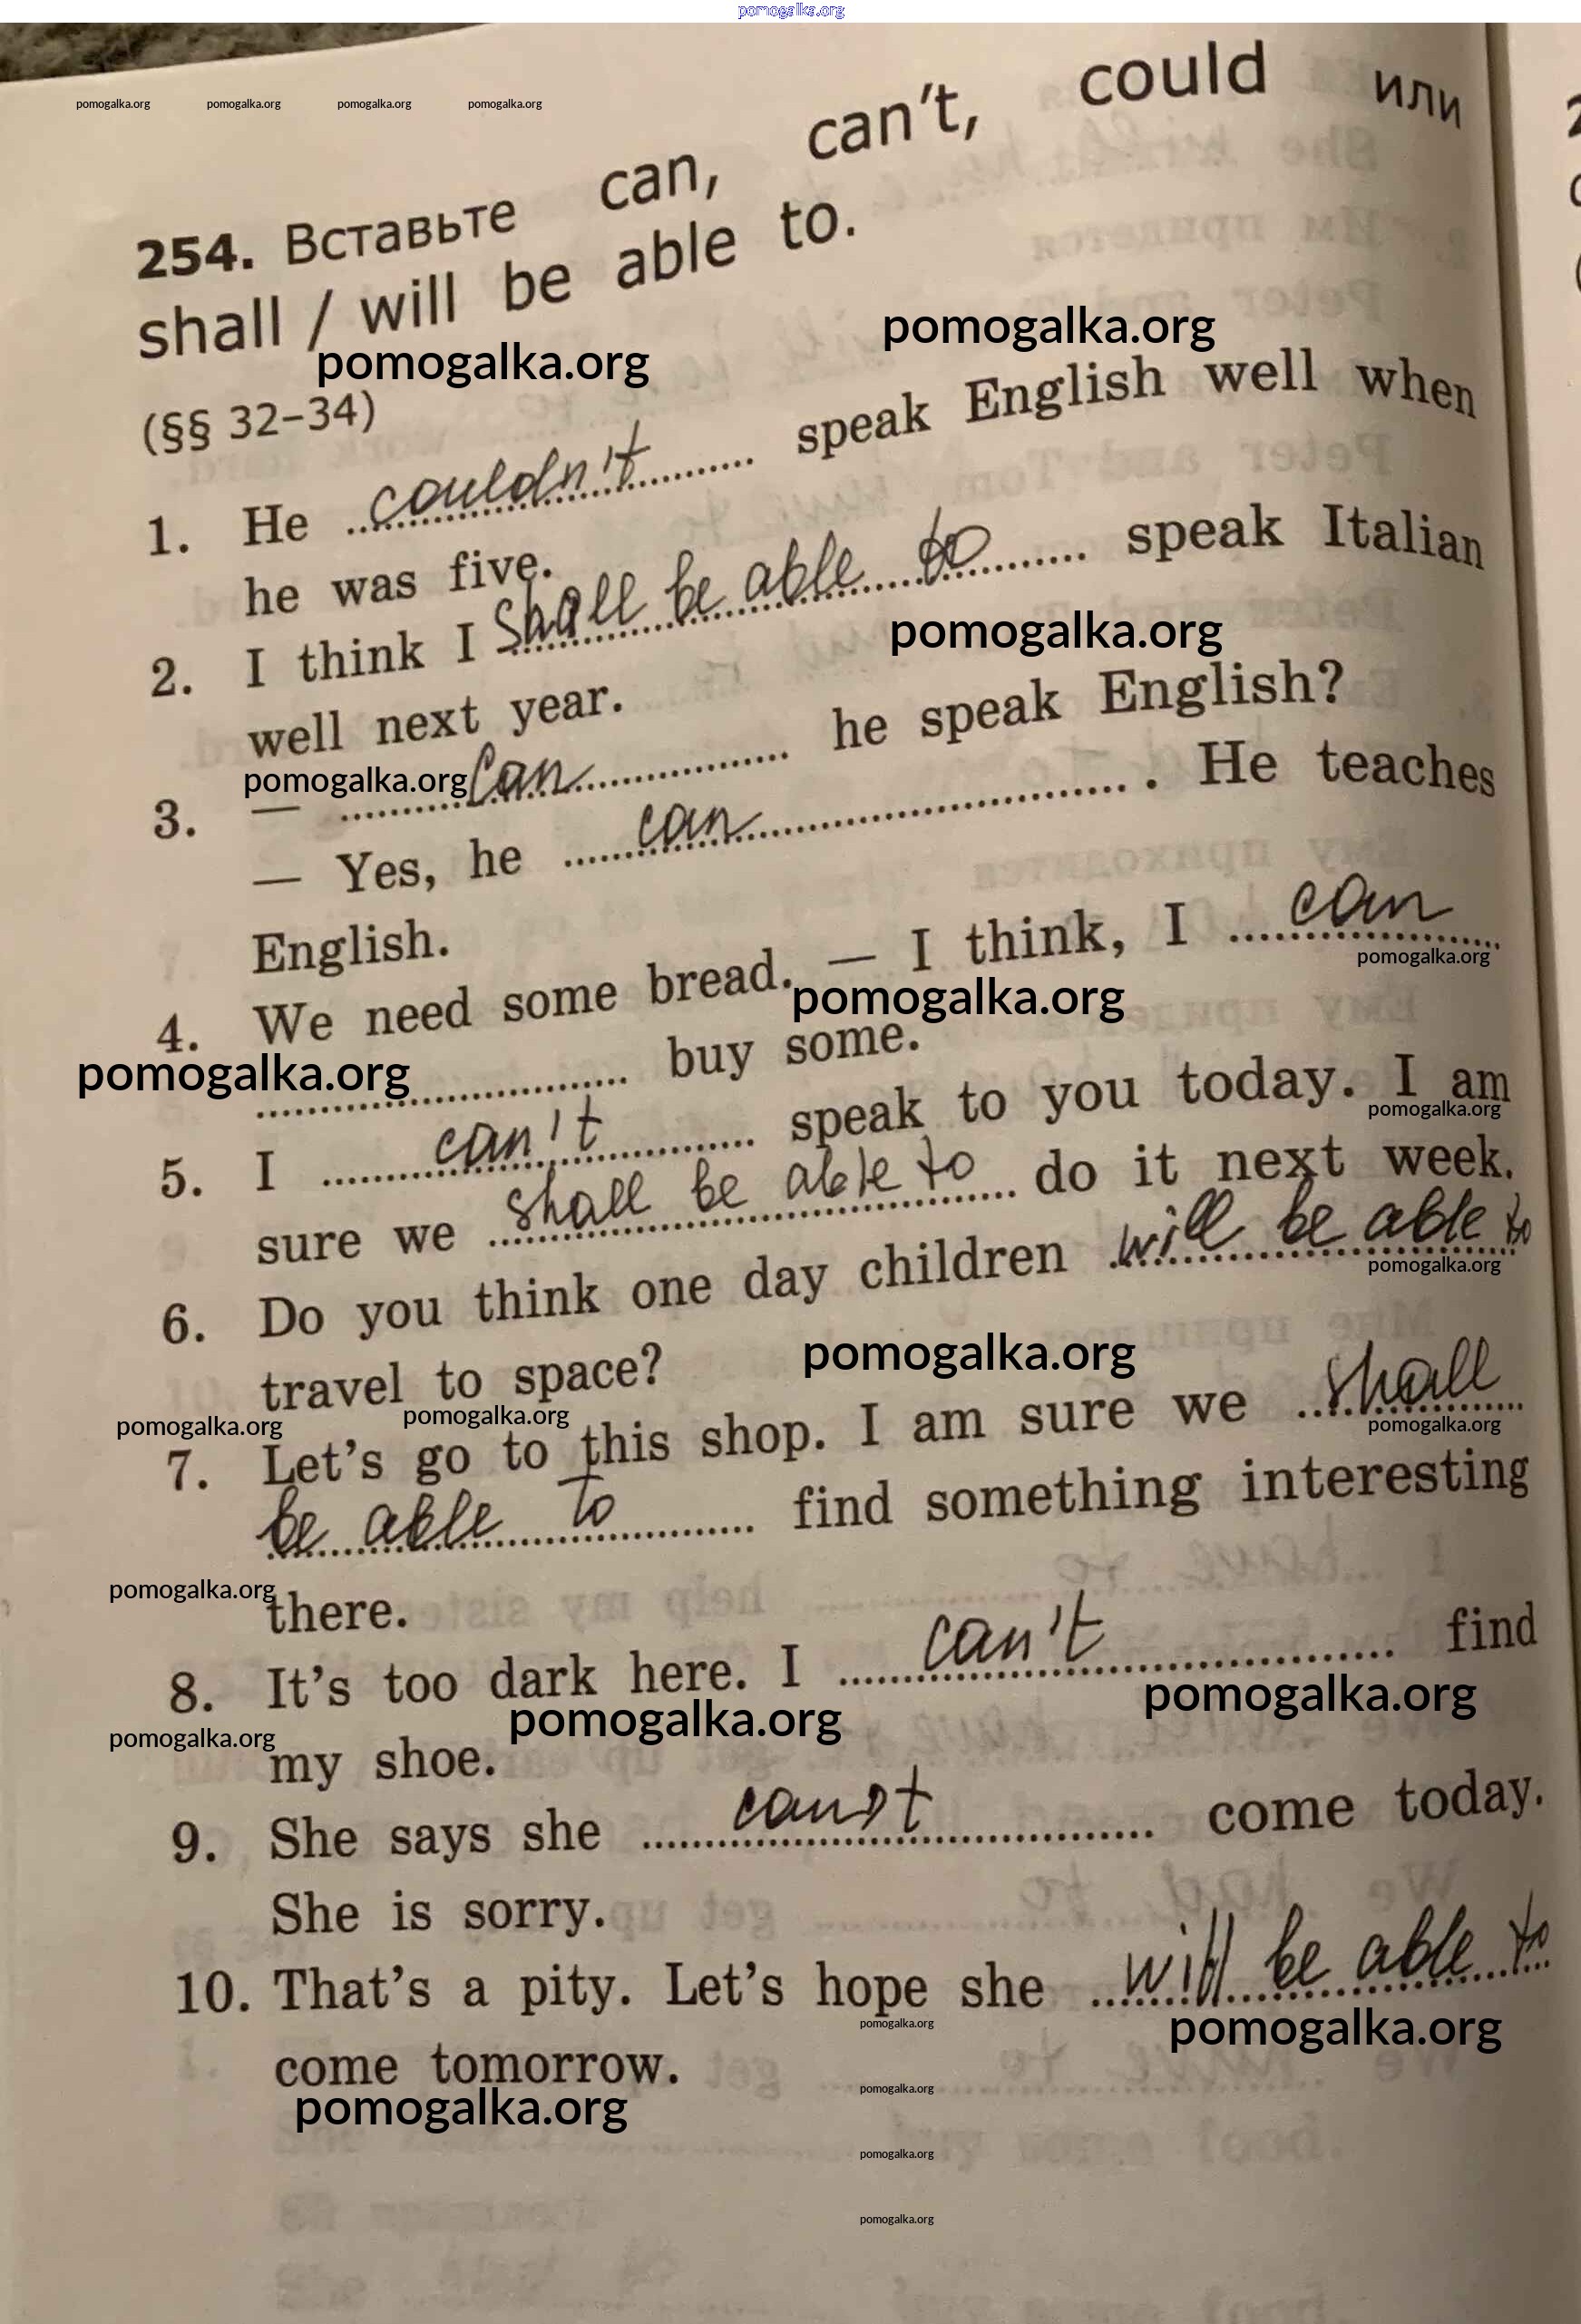 pomogalka.org
pomogalka.org pomogalka.org pomogalka.org pomogalka.org
254. Вставьте can, can't, could или
shall / will be able to.
pomogalka.org
pomogalka.org
(§§ 32–34)
1. He couldn't speak English well when
he was five.
2. I think I shall be able to speak Italian
pomogalka.org
well next year.
pomogalka.org
3. — Can he speak English?
— Yes, he can . He teaches
English.
4. We need some bread. — I think, I can
pomogalka.org
pomogalka.org
pomogalka.org
buy some.
5. I can't speak to you today. I am
pomogalka.org
sure we shall be able to do it next week.
6. Do you think one day children will be able to
pomogalka.org
travel to space?
pomogalka.org
pomogalka.org
pomogalka.org
7. Let's go to this shop. I am sure we shall
pomogalka.org
be able to find something interesting
pomogalka.org
there.
8. It's too dark here. I can't find
pomogalka.org
pomogalka.org
pomogalka.org
my shoe.
9. She says she can't come today.
She is sorry.
10. That's a pity. Let's hope she will be able to
pomogalka.org
pomogalka.org
come tomorrow.
pomogalka.org
pomogalka.org
pomogalka.org
pomogalka.org